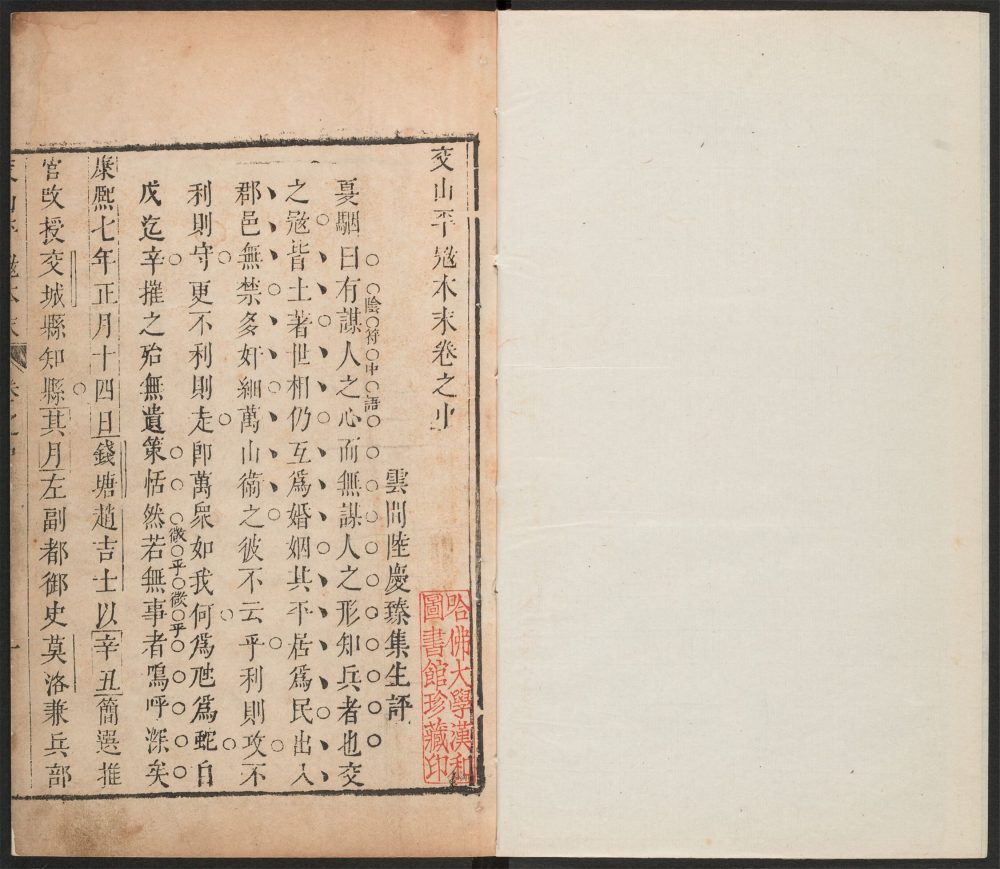 交山平寇本末卷之中
雲間陸慶臻集生評
夏駰曰有謀人之心而無謀人之形知兵者也交
陰符中語
之寇皆土著世相仍互爲婚姻其平居爲民出入
郡邑無禁多奸細萬山衞之彼不云乎利則攻不
利則守更不利則走卽萬衆如我何爲虺爲蛇自
戊迄辛摧之殆無遺策恬然若無事者嗚呼深矣
微乎微乎
康熙七年正月十四日錢塘趙吉士以辛丑簡選推
官改授交城縣知縣其月左副都御史莫洛兼兵部
交山平寇本末
卷之中
一
哈佛大學漢和
圖書館珍藏印